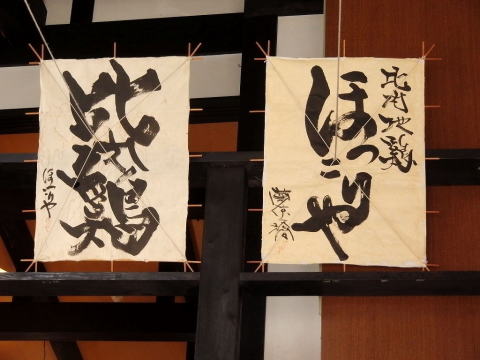 比内地鶏
ほっこりや
夢京橋
比内鶏
ほっこりや